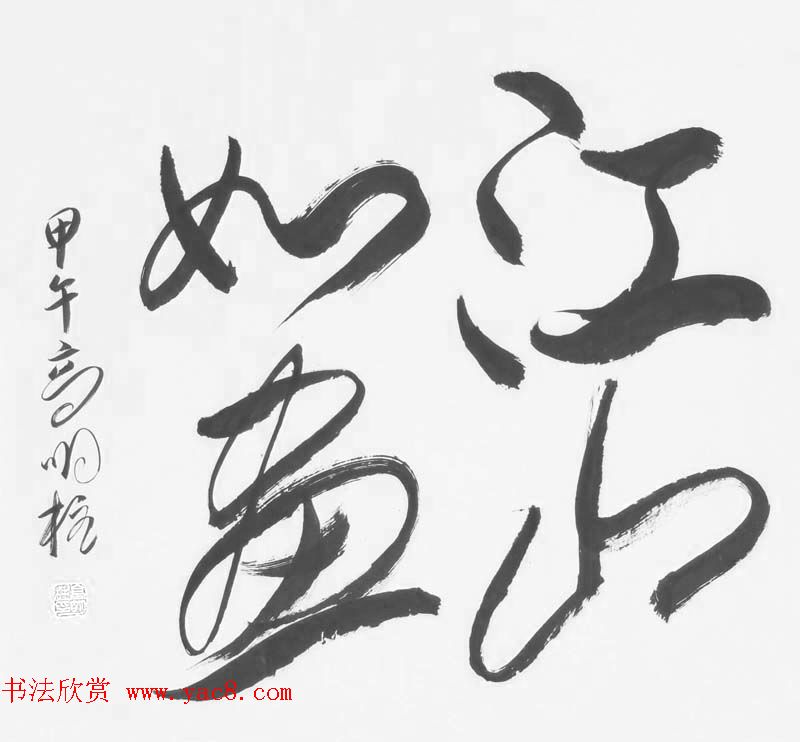 江山
如画
甲午高明柱
书法欣赏 www.yac8.com